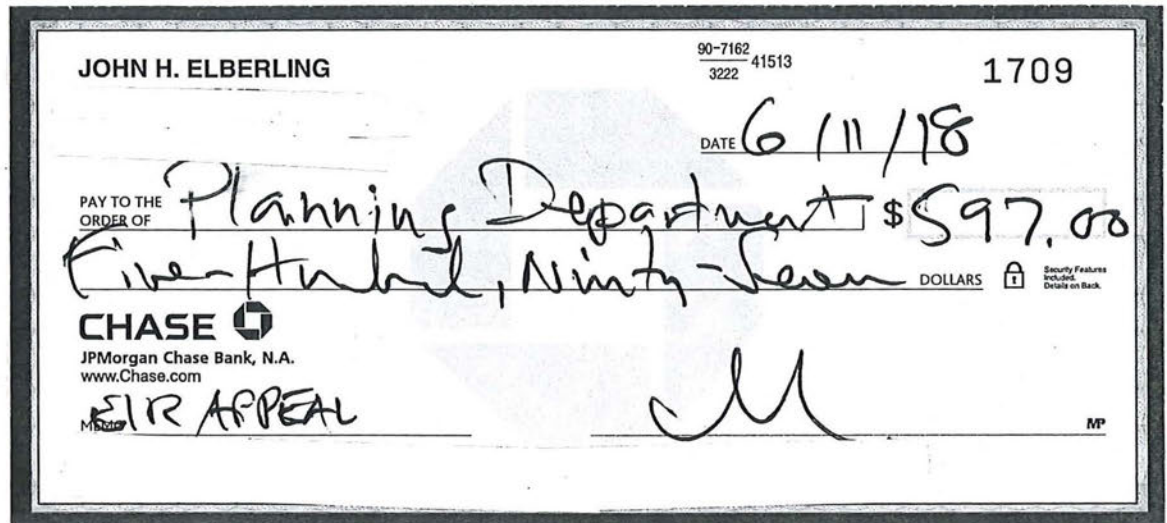 JOHN H. ELBERLING
90-7162
3222 41513
1709
DATE 6/11/18
PAY TO THE
ORDER OF Planning Department $ 597.00
Five-Hundred, Ninty-Seven DOLLARS
Security Features
Included.
Details on Back.
CHASE
JPMorgan Chase Bank, N.A.
www.Chase.com
MEMO EIR APPEAL
MP